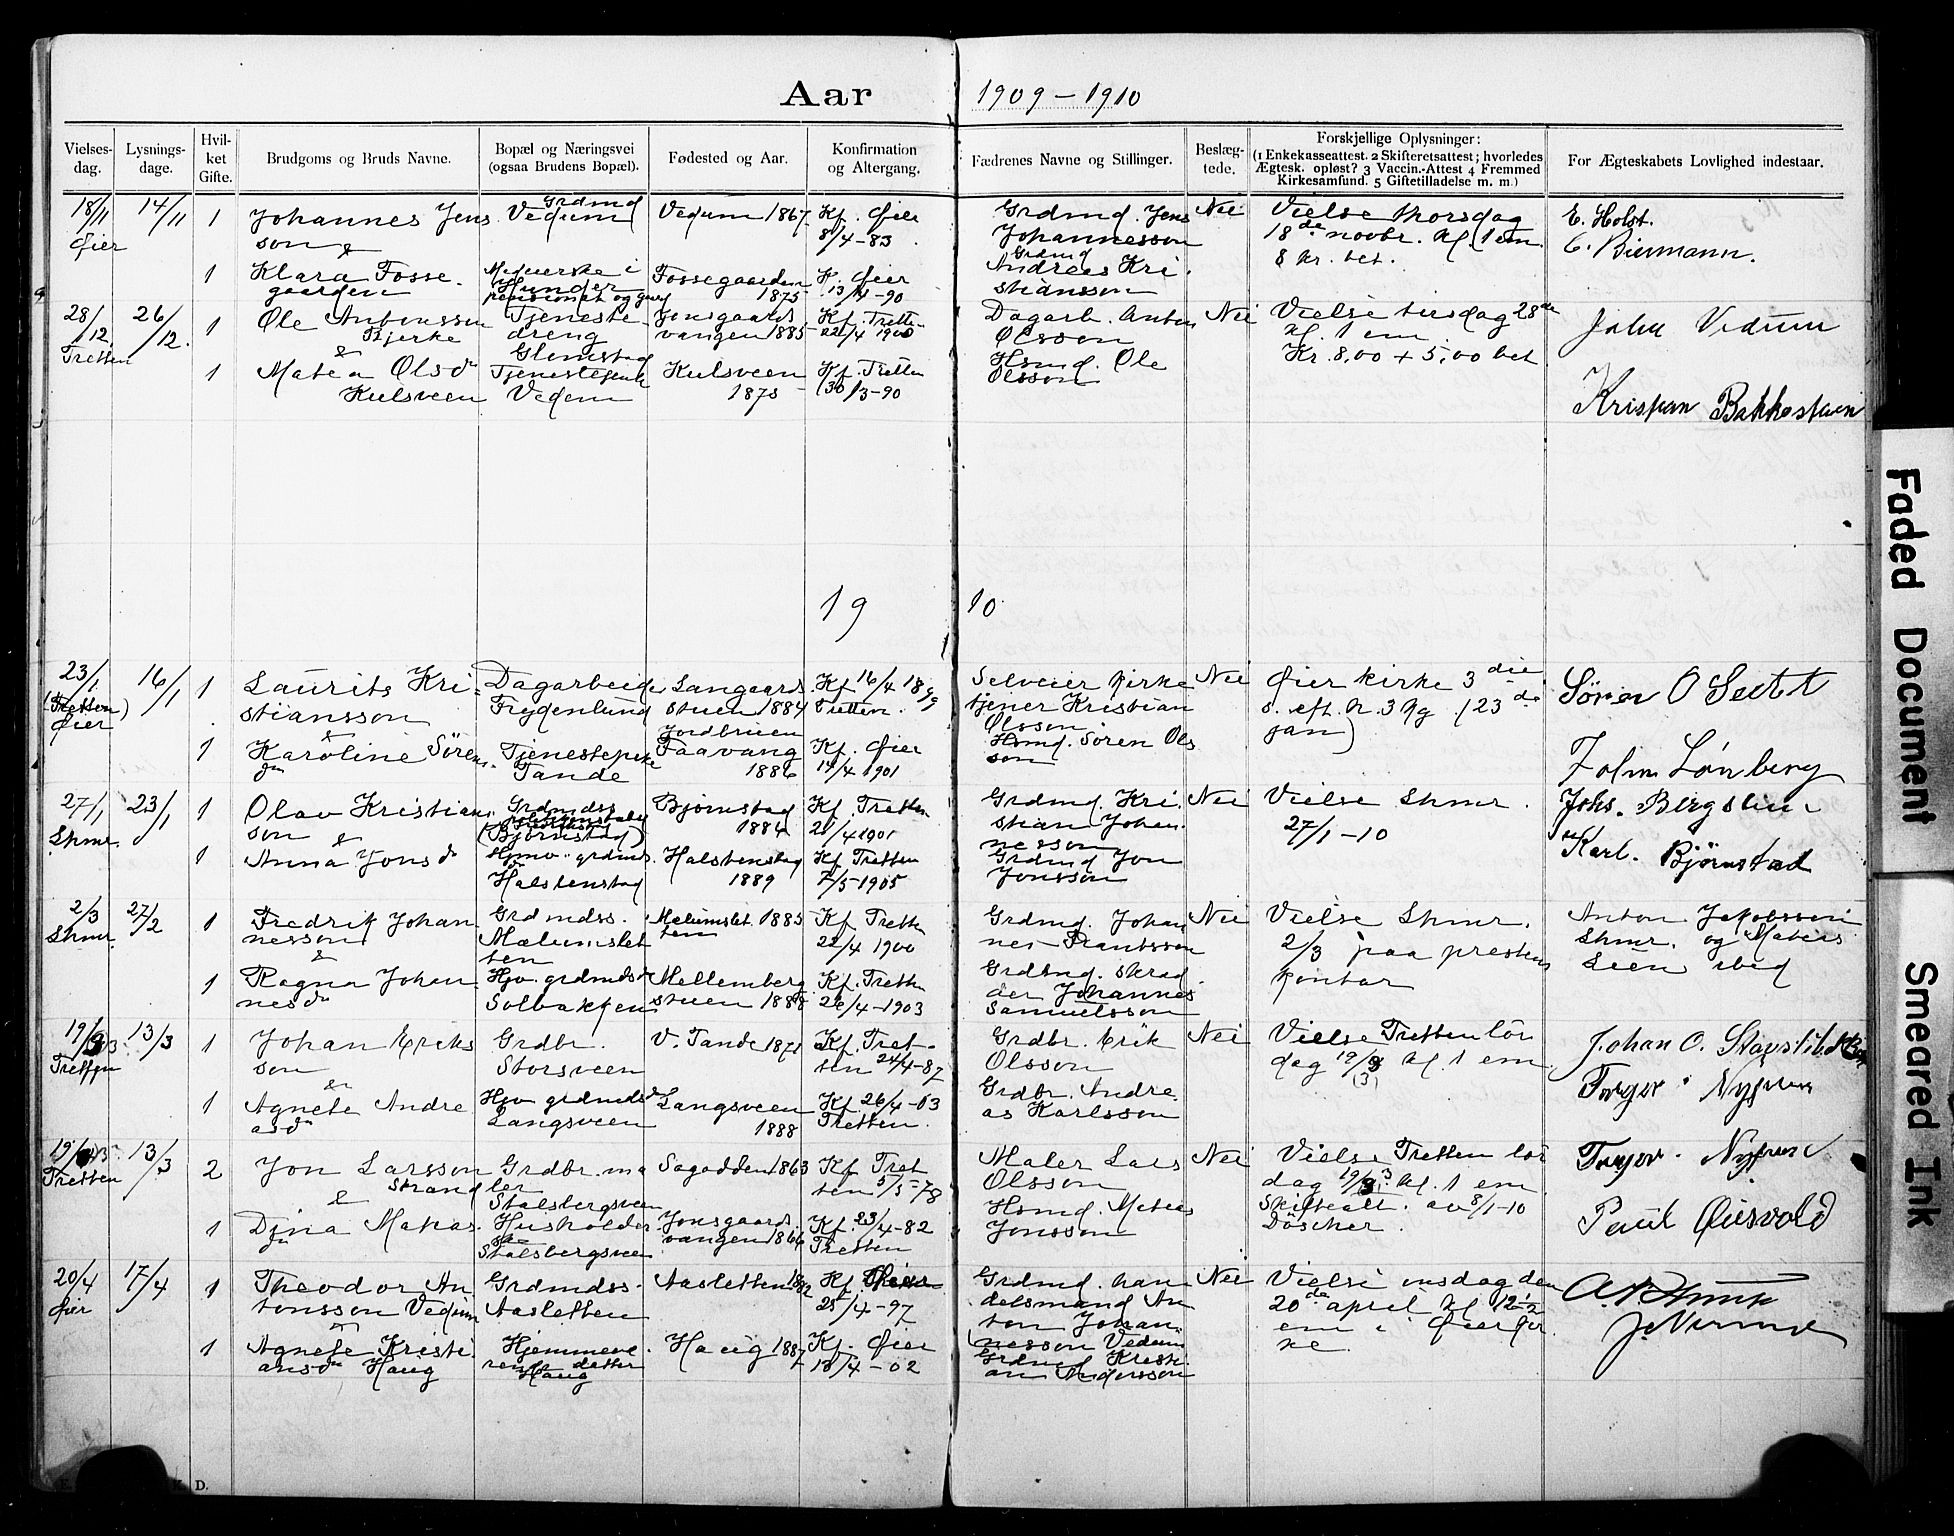 Aar 1909-1910
Vielses-dag. Lysnings-dage. Hvil-ket Gifte. Brudgoms og Bruds Navne. Bopæl og Næringsvei (ogsaa Brudens Bopæl). Fødested og Aar. Konfirmation og Altergang. Fædrenes Navne og Stillinger. Beslæg-tede. Forskjellige Oplysninger: (1 Enkekasseattest. 2 Skifteretsattest; hvorledes Ægtesk. opløst? 3 Vaccin.-Attest 4 Fremmed Kirkesamfund. 5 Giftetilladelse m. m.) For Ægteskabets Lovlighed indestaar.
18/11 Øier
14/11
1
Johannes Jens
son &
Grdmd
Vedum
Vedum 1867
Kf. Øier
8/4-83
Grdmd. Jens
Johannesson
Nei
Vielse thorsdag
18de novbr. kl. 1 em.
8 kr. bet.
E. Holst.
C. Biermann.
1
Klara Fosse-
gaarden
Meierske i
Hunder
pensionat og gaard
Fossegaarden
1875
K. Øier
13/4-90
Grdmd
Andreas Kri
stiansson
28/12 Tretten
26/12.
1
Ole Antonsson
Bjerke
&
Tjeneste
dreng
Glomstad
Jonsgaards
vangen 1885
Kf. Tretten
22/4 1900
Dagarb. Anton
Olsson
Nei
Vielse tirsdag 28de
kl. 1 em.
Kr. 8,00 + 5,00 bet
Johan Vedum
1
Matea Olsdr
Kulsveen
Tjenestejente
Vedum
Kulsveen
1875
Kf. Tretten
30/3-90
Hsmd. Ole
Olsson
Kristian Bakkestuen
1910
23/1 (Tretten) Øier
16/1
1
Laurits Kri-
stiansson
&
Dagarbeider
Frydenlund
Langaard
stuen 1884
Kf 16/4 1899
Tretten.
Selveier Kirke
tjener Kristian
Olsson
Nei
Øier kirke 3die
s. eft. h. 3 kg (23de
jan)
Søren O Sletet
1
Karoline Sørens
dr
Tjenestepike
Tande
Jordbruen
Faavang
1886
Kf. Øier
14/4 1901
Hsmd. Søren Ols
son
Johan Lønberg
27/1 Lhmr.
23/1
1
Olav Kristians
son &
Grdmdss
(Bjørnstad)
Bjørnstad
1884
Kf. Tretten
21/4 1901
Grdmd. Kri
stian Johan
nesson
Nei
Vielse Lhmr.
27/1-10
Johs. Bergslien
1
Anna Jonsdr
Hjmv. grdmds.
Halstenstad
Halstenstad
1889
Kf. Tretten
7/5-1905
Grdmd Jon
Jonsson
Karl. Bjørnstad
2/3 Lhmr.
27/2
1
Fredrik Johan
nesson
&
Grdmdss.
Mælumslet
ten
Mælumslet 1885
ten
Kf. Trett
22/4 1900
Grdmd. Johan
nes Frantsson
Nei
Vielse Lhmr.
2/3 paa prestens
kontor
Anton Jakobsson
Lhmr. og Matias
Lien ibid
1
Ragna Johan
nesdr
Hjv. grdmdsdr
Solbakken
Mellemberg
stuen 1888
Kf. Tretten
26/4-1903
Grdmd. skræd
der Johannes
Samuelsson
19/3 Tretten
13/3
1
Johan Eriks
son
&
Grdbr.
Storsveen
V. Tande 1871
Kf. Tret-
ten 24/4-87
Grdbr. Erik
Olsson
Nei
Vielse Tretten lør
dag 19/3 kl. 1 em
(3)
Johan O. Stavslibakken
1
Agnete Andre
asdr
Hjv grdmdsdr
Langsveen
Langsveen
1888
Kf. 26/4-03
Tretten.
Grdbr. Andre
as Karlsson
19/3 Tretten
13/3
2
Jon Larsson
Strand
&
Grdbr. ma
ler
Stalsbergsveen
Sagodden 1863
Kf Tret
ten 5/5-78
Maler Lars
Olsson
Nei
Vielse Tretten lør
dag 19/3 kl. 1 em.
Skifteatt. av 8/1-10
1
Dina Matias
dr
Husholder
ske
Stalsbergsveen
Jonsgaards
vangen 1866
Kf. 23/4-82
Tretten
Hsmd. Matias
Jonsson
Paul Øiesvold
20/4 Øier
17/4
1
Theodor An
tonsson Vedum
&
Grdmdss.
Aasletten
Aasletten 1882
Kf. Øier
25/4-97
Grdmd. han
delsmand An
ton Johan
nesson Vedum
Nei
Vielse onsdag den
20de april kl 12 1/2
em i Øier kir
ke.
1
Agnete Kristi
ansdr Haug
Hjemmeve
rende datter
Haug
Haug 1887
Kf. Øier
13/4-02
Grdmd Kristi
an Andersson
K. D.
Faded Document
Smeared Ink